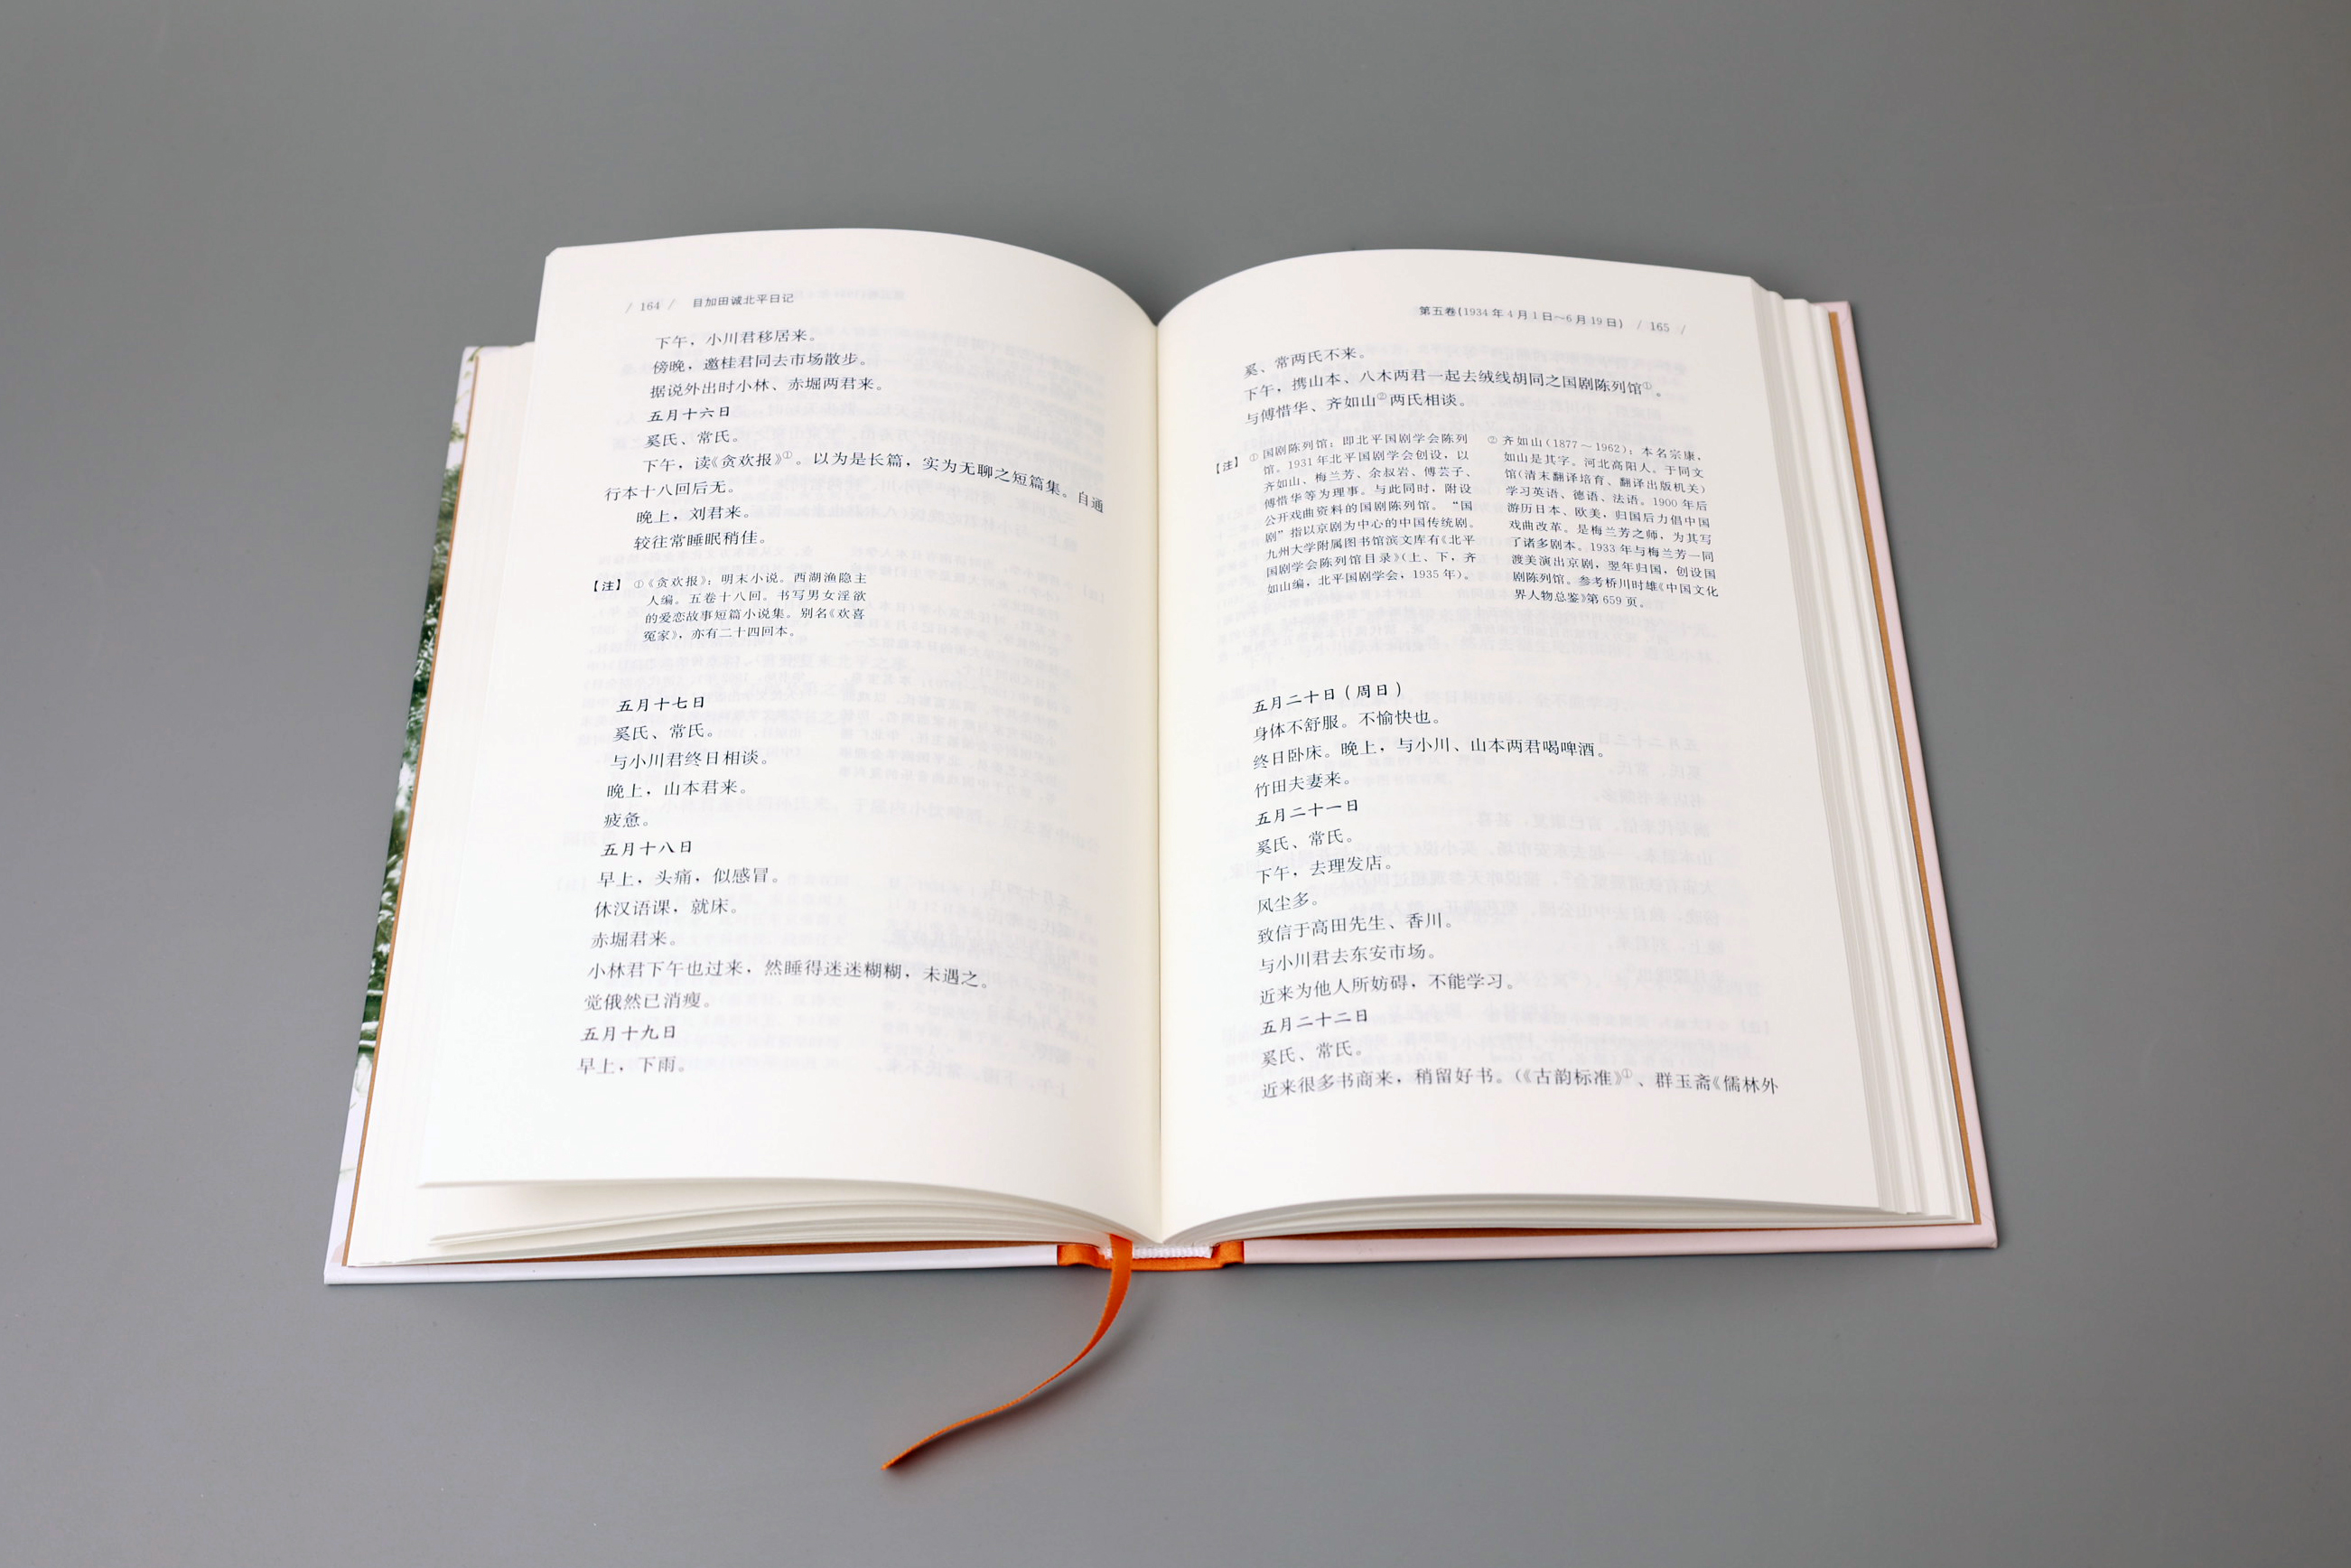 / 164 / 目加田诚北平日记
下午，小川君移居来。
傍晚，邀桂君同去市场散步。
据说外出时小林、赤堀两君来。
五月十六日
奚氏、常氏。
下午，读《贪欢报》①。以为是长篇，实为无聊之短篇集。自通
行本十八回后无。
晚上，刘君来。
较往常睡眠稍佳。
【注】 ①《贪欢报》：明末小说。西湖渔隐主
人编。五卷十八回。书写男女淫欲
的爱恋故事短篇小说集。别名《欢喜
冤家》，亦有二十四回本。
五月十七日
奚氏、常氏。
与小川君终日相谈。
晚上，山本君来。
疲惫。
五月十八日
早上，头痛，似感冒。
休汉语课，就床。
赤堀君来。
小林君下午也过来，然睡得迷迷糊糊，未遇之。
觉俄然已消瘦。
五月十九日
早上，下雨。
第五卷(1934年4月1日～6月19日) / 165 /
奚、常两氏不来。
下午，携山本、八木两君一起去绒线胡同之国剧陈列馆①。
与傅惜华、齐如山②两氏相谈。
【注】 ①国剧陈列馆：即北平国剧学会陈列
馆。1931年北平国剧学会创设，以
齐如山、梅兰芳、余叔岩、傅芸子、
傅惜华等为理事。与此同时，附设
公开戏曲资料的国剧陈列馆。“国
剧”指以京剧为中心的中国传统剧。
九州大学附属图书馆滨文库有《北平
国剧学会陈列馆目录》（上、下，齐
如山编，北平国剧学会，1935年）。
② 齐如山（1877～1962）：本名宗康，
如山是其字。河北高阳人。于同文
馆（清末翻译培育、翻译出版机关）
学习英语、德语、法语。1900年后
游历日本、欧美，归国后力倡中国
戏曲改革。是梅兰芳之师，为其写
了诸多剧本。1933年与梅兰芳一同
渡美演出京剧，翌年归国，创设国
剧陈列馆。参考桥川时雄《中国文化
界人物总鉴》第659页。
五月二十日（周日）
身体不舒服。不愉快也。
终日卧床。晚上，与小川、山本两君喝啤酒。
竹田夫妻来。
五月二十一日
奚氏、常氏。
下午，去理发店。
风尘多。
致信于高田先生、香川。
与小川君去东安市场。
近来为他人所妨碍，不能学习。
五月二十二日
奚氏、常氏。
近来很多书商来，稍留好书。（《古韵标准》①、群玉斋《儒林外